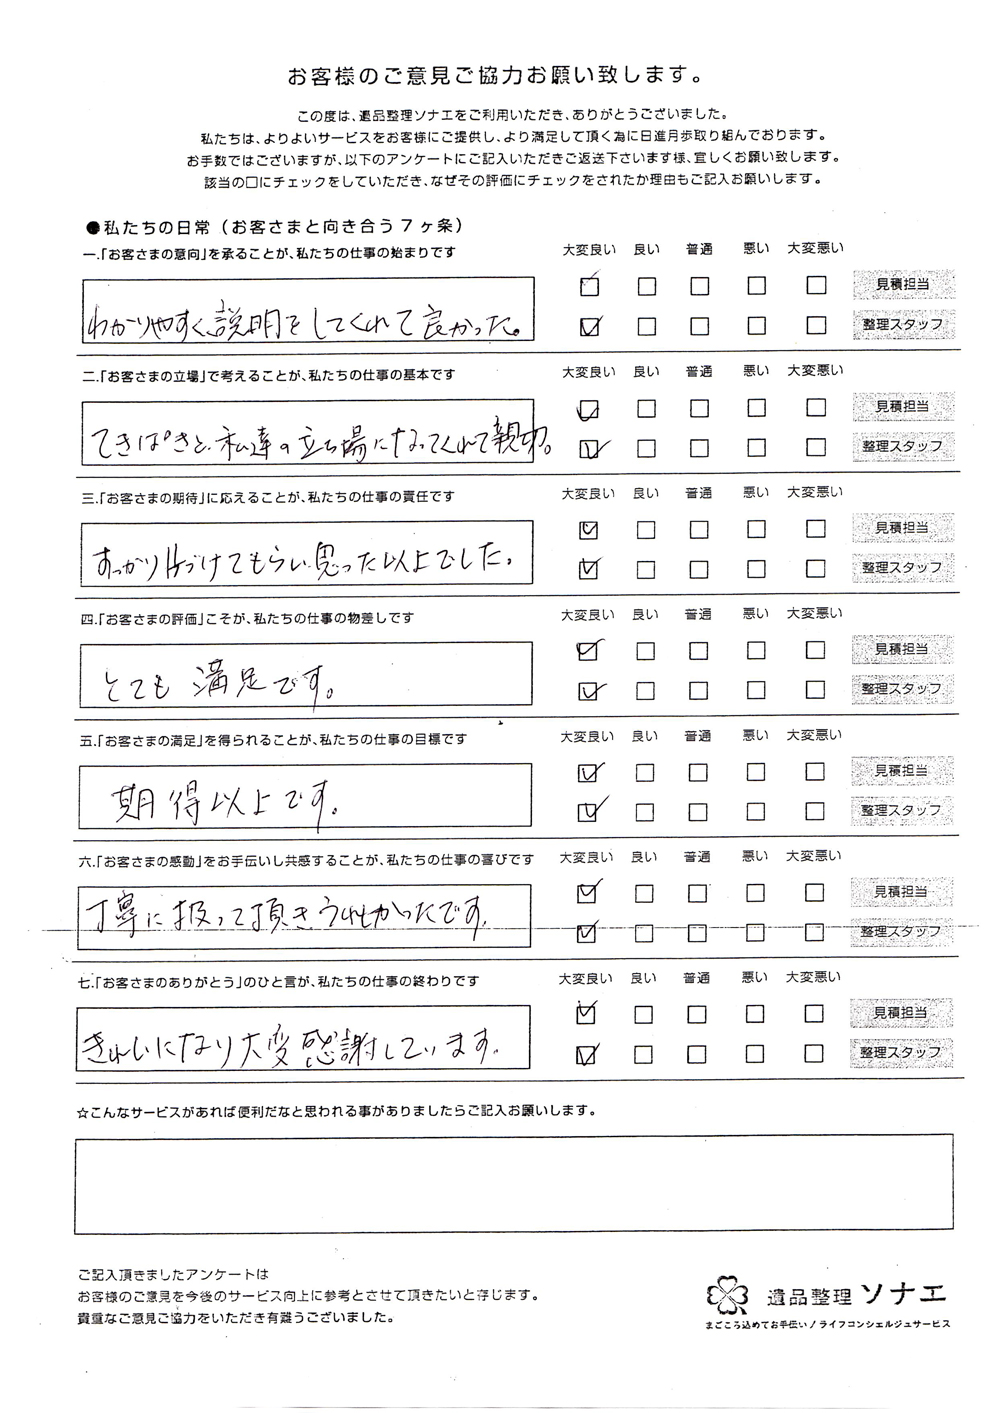 お客様のご意見ご協力お願い致します。
この度は、遺品整理ソナエをご利用いただき、ありがとうございました。
私たちは、よりよいサービスをお客様にご提供し、より満足して頂く為に日進月歩取り組んでおります。
お手数ではございますが、以下のアンケートにご記入いただきご返送下さいます様、宜しくお願い致します。
該当の□にチェックをしていただき、なぜその評価にチェックをされたか理由もご記入お願いします。
●私たちの日常（お客さまと向き合う７ヶ条）
一.「お客さまの意向」を承ることが、私たちの仕事の始まりです 大変良い 良い 普通 悪い 大変悪い
見積担当
わかりやすく説明をしてくれて良かった。
整理スタッフ
二.「お客さまの立場」で考えることが、私たちの仕事の基本です 大変良い 良い 普通 悪い 大変悪い
見積担当
てきぱきと、私達の立ち場になってくれて親切。
整理スタッフ
三.「お客さまの期待」に応えることが、私たちの仕事の責任です 大変良い 良い 普通 悪い 大変悪い
見積担当
すっかり片づけてもらい思った以上でした。
整理スタッフ
四.「お客さまの評価」こそが、私たちの仕事の物差しです 大変良い 良い 普通 悪い 大変悪い
見積担当
とても満足です。
整理スタッフ
五.「お客さまの満足」を得られることが、私たちの仕事の目標です 大変良い 良い 普通 悪い 大変悪い
見積担当
期得以上です。
整理スタッフ
六.「お客さまの感動」をお手伝いし共感することが、私たちの仕事の喜びです 大変良い 良い 普通 悪い 大変悪い
見積担当
丁寧に扱って頂きうれしかったです。
整理スタッフ
七.「お客さまのありがとう」のひと言が、私たちの仕事の終わりです 大変良い 良い 普通 悪い 大変悪い
見積担当
きれいになり大変感謝しています。
整理スタッフ
☆こんなサービスがあれば便利だなと思われる事がありましたらご記入お願いします。
ご記入頂きましたアンケートは
お客様のご意見を今後のサービス向上に参考とさせて頂きたいと存じます。
貴重なご意見ご協力をいただき有難うございました。
遺品整理 ソナエ
まごころ込めてお手伝い！ライフコンシェルジュサービス